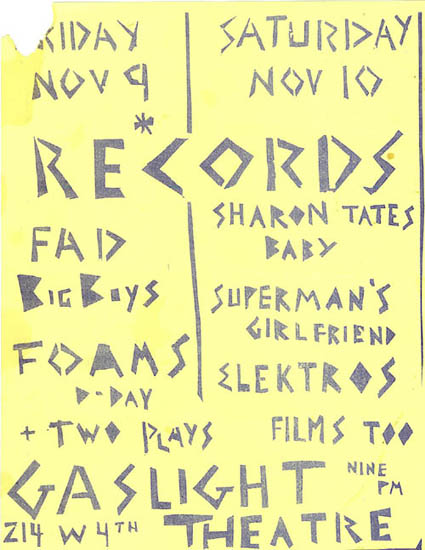 RIDAY
NOV 9
SATURDAY
NOV 10
RE*CORDS
FAD
BIGBOYS
FOAMS
D-DAY
+ TWO PLAYS
SHARON TATES
BABY
SUPERMAN'S
GIRLFRIEND
ELEKTROS
FILMS TOO
GASLIGHT
NINE
PM
214 W 4TH THEATRE